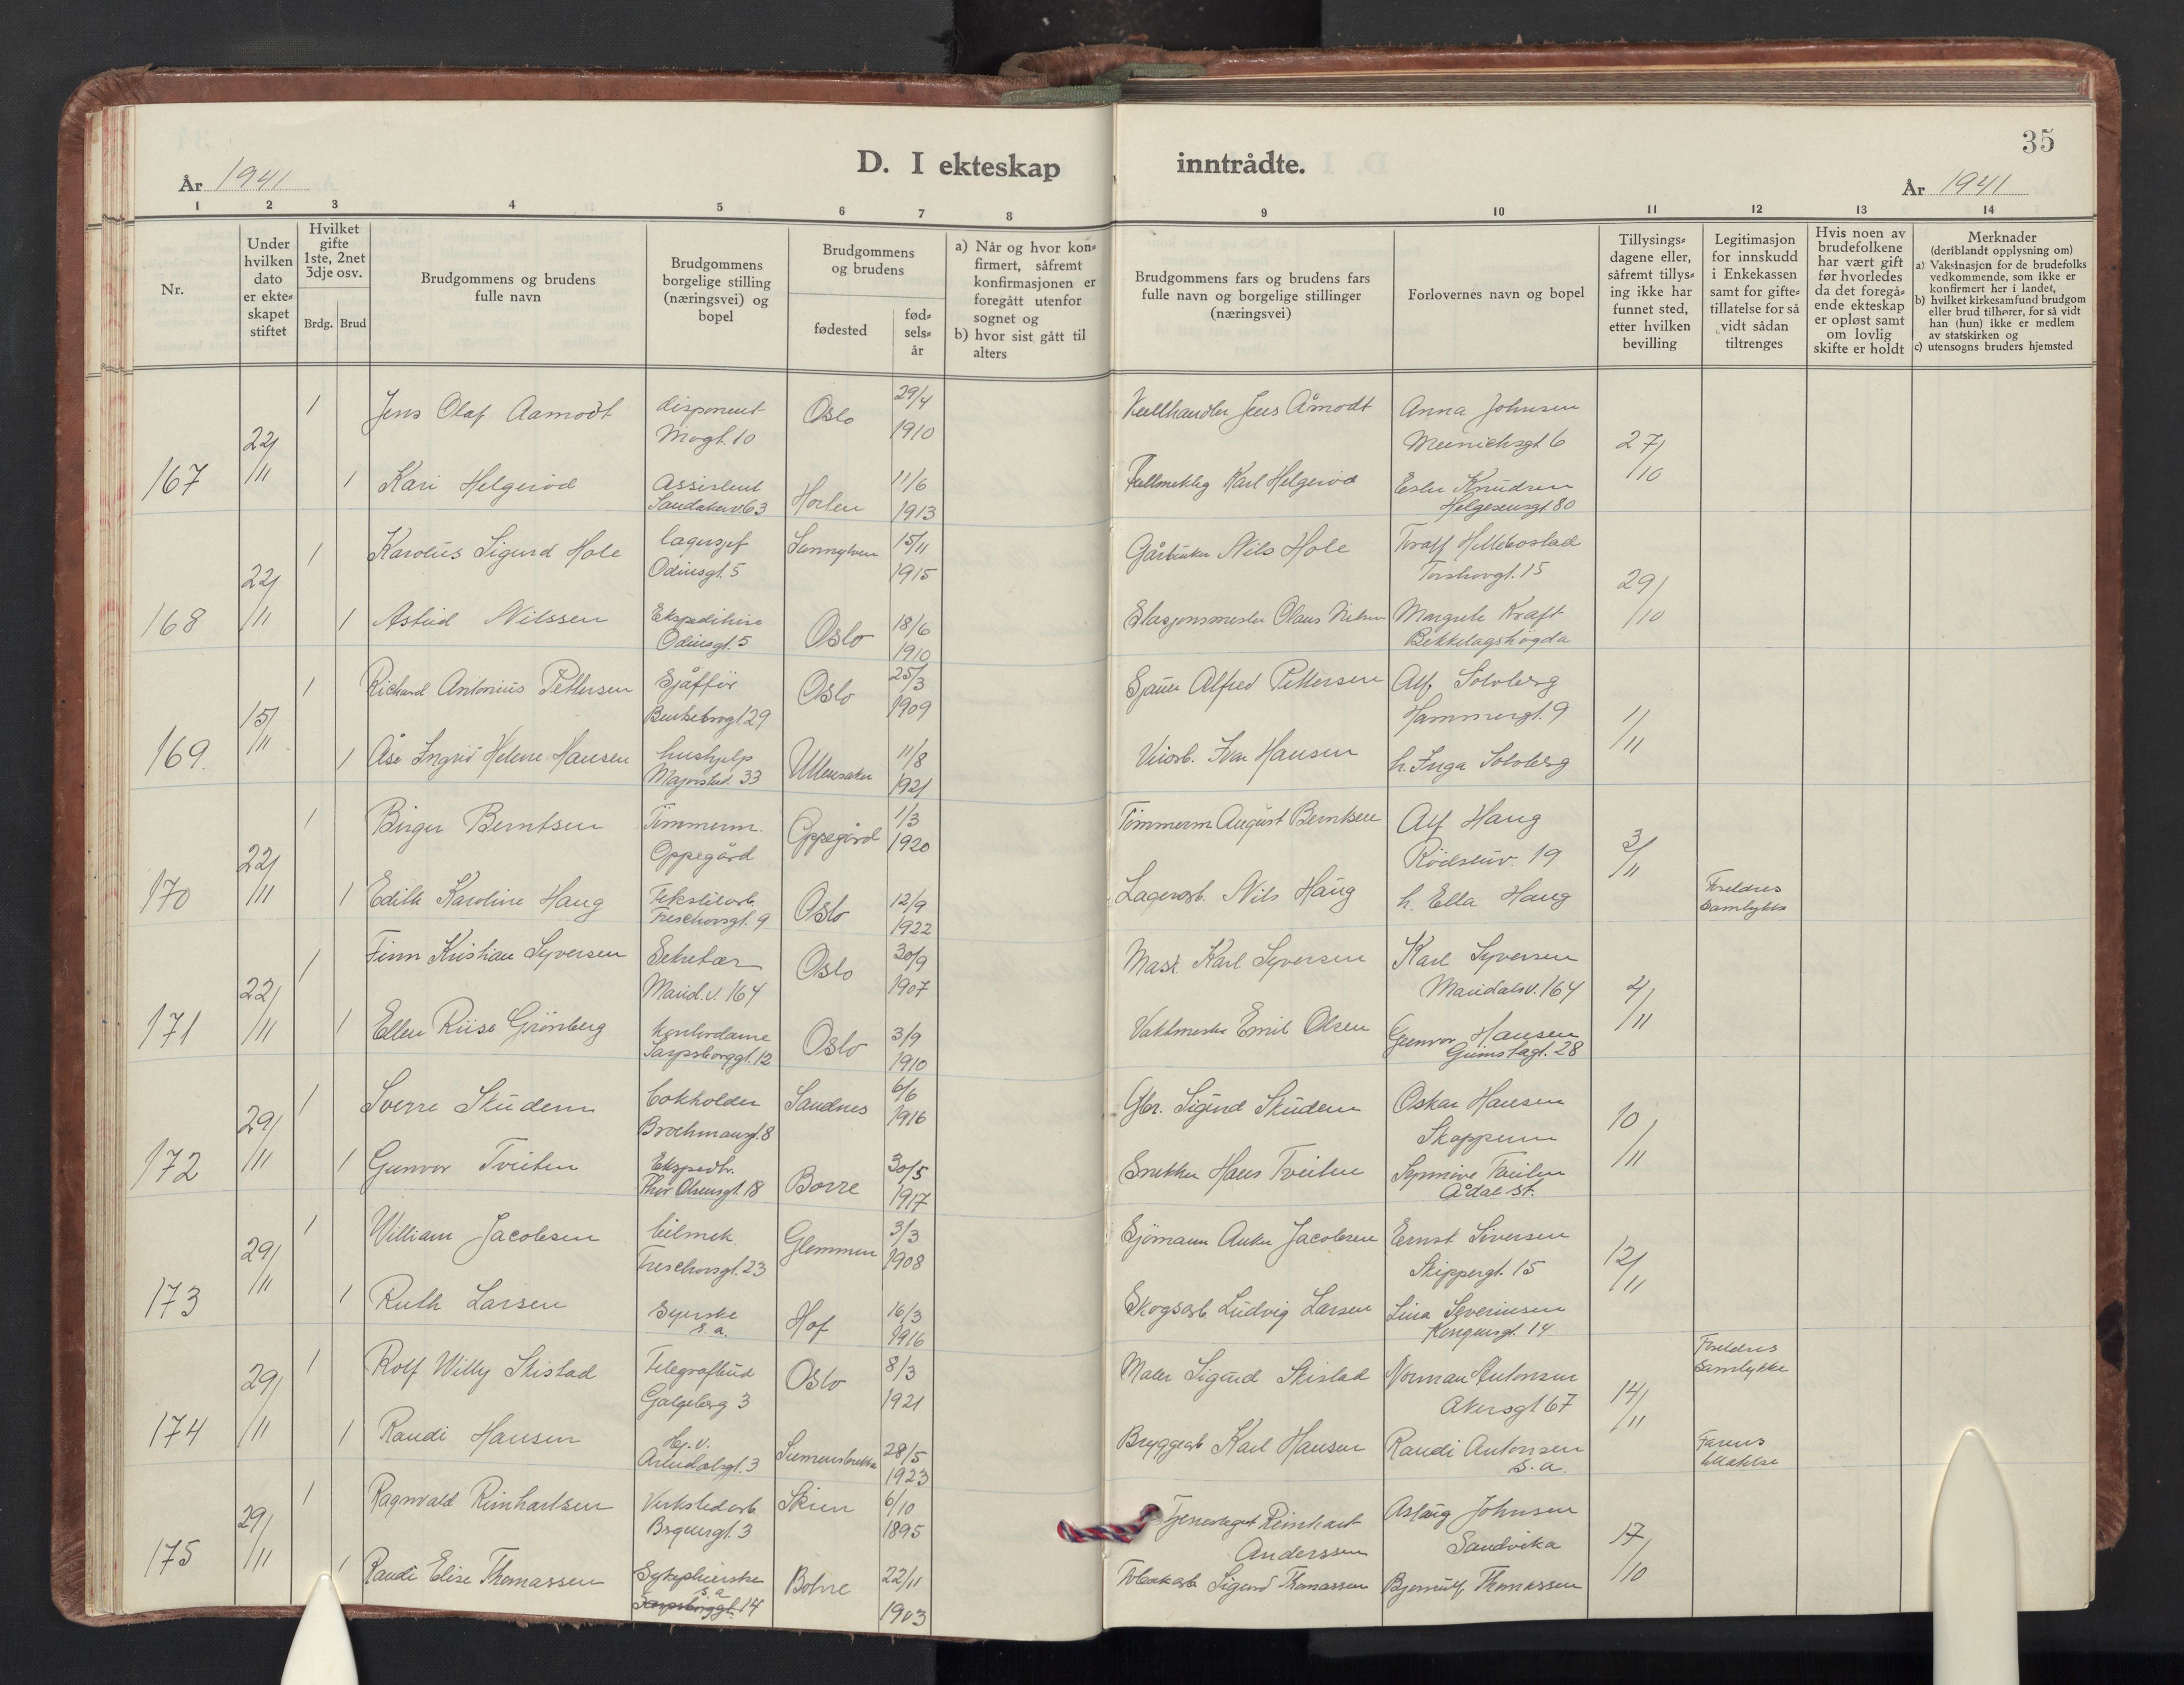 35
D. I ekteskap inntrådte.
År 1941
År 1941
1 2 3 4 5 6 7 8 9 10 11 12 13 14
Nr.
Under
hvilken
dato
er ekte-
skapet
stiftet
Hvilket
gifte
1ste, 2net
3dje osv.
Brdg. Brud
Brudgommens og brudens
fulle navn
Brudgommens
borgelige stilling
(næringsvei) og
bopel
Brudgommens
og brudens
fødested
fød-
sels-
år
a) Når og hvor kon-
firmert, såfremt
konfirmasjonen er
foregått utenfor
sognet og
b) hvor sist gått til
alters
Brudgommens fars og brudens fars
fulle navn og borgelige stillinger
(næringsvei)
Forlovernes navn og bopel
Tillysings-
dagene eller,
såfremt tillys-
ing ikke har
funnet sted,
etter hvilken
bevilling
Legitimasjon
for innskudd
i Enkekassen
samt for gifte-
tillatelse for så
vidt sådan
tiltrenges
Hvis noen av
brudefolkene
har vært gift
før hvorledes
da det foregå-
ende ekteskap
er opløst samt
om lovlig
skifte er holdt
Merknader
(deriblandt opplysning om)
a) Vaksinasjon for de brudefolks
vedkommende, som ikke er
konfirmert her i landet,
b) hvilket kirkesamfund brudgom
eller brud tilhører, for så vidt
han (hun) ikke er medlem
av statskirken og
c) utensogns bruders hjemsted
1 Jens Olaf Aamodt disponent Oslo 29/4 Jens Åmodt Anna Johnsen
22/ 10 1910 6 27/
167 /11 1 Kari Helgerød Assistent Horten 11/6 Karl Helgerød Knudsen /10
Sandakerv. 63 1913 Helgesensgt 80
1 Karolus Sigurd Hole lagersjef 15/11 Gårbruker Nils Hole Toralf Hellebostad
22/ Odinsgt. 5 1915 Torshovgt. 15 29/
168 /11 1 Astrid Nilssen Ekspeditrise Oslo 18/6 Stasjonsmester Olaus Margrete Kraft /10
Odinsgt. 5 1910 Bekkelagshøgda
1 Richard Antonius Pettersen Sjåffør Oslo 25/3 Alfred Pettersen Alf Solvberg
15/ 29 1909 Hammergt. 9 1/
169. /11 1 Åse Ingrid Helene Hansen hushjelp Ullensaker 11/8 Hansen h. Inga Solvberg /11
33 1921
1 Birger Berntsen Tømmerm. Oppegård 1/3 Tømmerm August Berntsen Alf Haug
22/ Oppegård 1920 19 3/
170 /11 1 Edith Karoline Haug Tekstilarb. Oslo 12/9 Lagerarb. Nils Haug h. Ella Haug /11 Foreldres
Treschowsgt. 9 1922 Samtykke
1 Finn Kristian Syversen Sekretær Oslo 30/9 Mask. Karl Syversen Karl Syversen
22/ Marid.v. 164 1907 Maridalsv. 164 4/
171 /11 1 Ellen Riise Grønberg Kontordame Oslo 3/9 Vaktmester Emil Olsen Gunvor Hansen /11
Sarpsborggt. 12 1910 28
1 Sverre Skudem Sandnes 6/6 Gbr. Sigurd Skudem Oskar Hansen
29/ 8 1916 Skoppum 10/
172 /11 1 Gunvor Tveiten Ekspedtr. Borre 30/5 Snekker Hans Tveiten Synnøve Tveiten /11
Thor Olsensgt. 18 1917 Ådal st.
1 William Jacobsen bilmek. Glemmen 3/3 Sjømann Anker Jacobsen Ernst Siversen
29/ Treschowsgt. 23 1908 Skippergt. 15 12/
173 /11 1 Ruth Larsen Syerske Hof 16/3 Skogsarb. Ludvig Larsen Lina Severinsen /11
s. a. 1916 Kongensgt. 14
1 Rolf Willy Skistad Telegrafbud Oslo 8/3 Maler Sigurd Skistad Norman Antonsen Foreldres
Samtykke
29/ Galgeberg 3 1921 Akersgt 67 14/
174 /11 1 Randi Hansen Hj. v. 28/5 Bryggearb Karl Hansen Randi Antonsen /11 Farens
Arendalsgt. 3 1923 s. a. tillatelse
1 Ragnvald Reinhartsen Verkstedarb Skien 6/10 Reinhart Aslaug Johnsen
29/ 3 1895 Anderssen Sandvika 17/
175 /11 1 Randi Elise Thomassen Sykepleierske 22/11 Sigurd Thomassen Bjørnulf Thomassen /10
s. a
Sarpsborggt. 14 1903